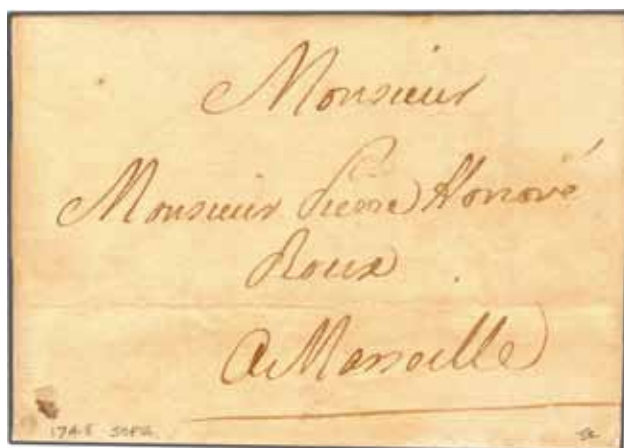 Monsieur
Monsieur Pierre Honoré
Roux
A Marseille
1745